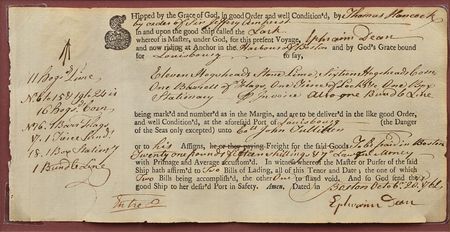 Hipped by the Grace of God, in good Order and well Condition'd, by Thomas Hancock
by order of Sir Jeffery Amherst
In and upon the good Ship called the Lark
whereof is Master, under God, for this present Voyage, Ephraim Dean
and now riding at Anchor in the Harbour of Boston and by God's Grace bound
for Louisbourg to say,
Eleven Hogsheads Stone Lime, Sixteen Hogsheads Corn
One Barrell of Flags, One Tierce of &c One Box
of Stationary invoice Also one Bundle Line
being mark'd and number'd as in the Margin, and are to be deliver'd in the like good Order,
and well Condition'd, at the aforesaid Port of Louisbourg (the Danger
of the Seas only excepted) unto Colo John Tulliken
or to his Assigns, he or they paying Freight for the said Goods To be paid in Boston
Twenty one pounds Lawful Money
with Primage and Average accustom'd. In witness whereof the Master or Purser of the said
Ship hath affirm'd to Two Bills of Lading, all of this Tenor and Date; the one of which
Two Bills being accomplish'd, the other One to stand void. And so God send the
good Ship to her desir'd Port in Safety. Amen, Dated in Boston Octobr. 20. 1761
Ephraim Dean
11 Lime
16 Corn
1 Flags
1 Tierce
1 Box Station
1 Bundle Line